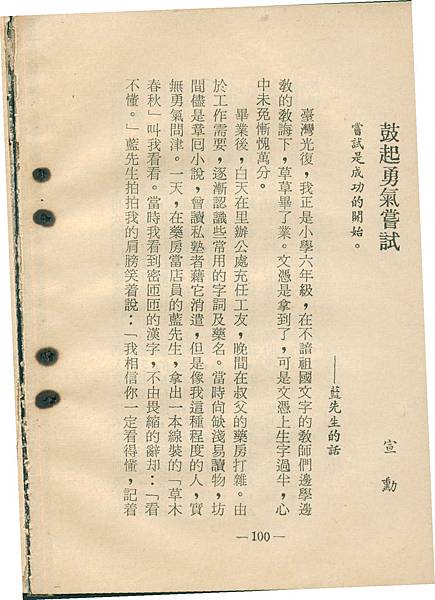 鼓起勇氣嘗試
嘗試是成功的開始。
——藍先生的話
宣動
臺灣光復,我正是小學六年級,在不諳祖國文字的教師們邊學邊
教的教誨下,草草畢了業。文憑是拿到了,可是文憑上生字過半,心
中未免慚愧萬分。
畢業後,白天在里辦公處充任工友,晚間在叔父的藥房打雜。由
於工作需要,逐漸認識些常用的字詞及藥名。當時尚缺淺易讀物,坊
間儘是章回小說,曾讀私塾者藉它消遣,但是像我這種程度的人,實
無勇氣問津。一天,在藥房當店員的藍先生,拿出一本線裝的「草木
春秋」叫我看看。當時我看到密匝匝的漢字,不由畏縮的辭却:「看
不懂。」藍先生拍拍我的肩膀笑着說:「我相信你一定看得懂,記着
—100—